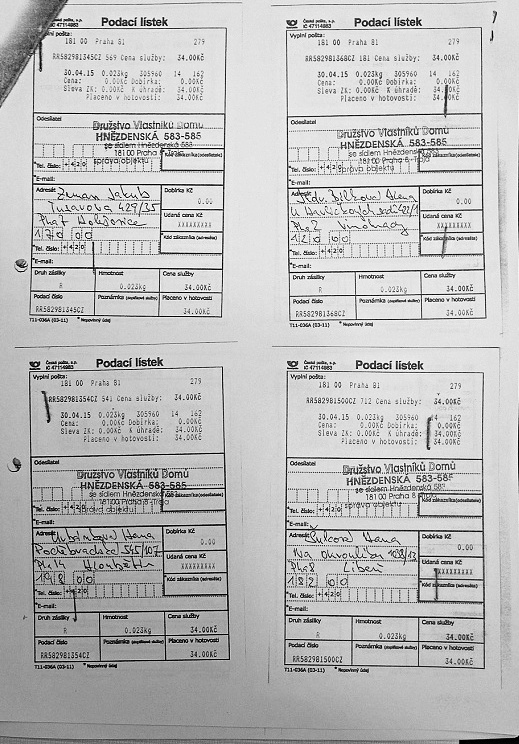 Česká pošta, s.p.
IČ 47114983
Podací lístek
Vyplní pošta:
181 00 Praha 81 279
RR582981345CZ 569 Cena služby: 34.00Kč
30.04.15 0.023kg 305960 14 162
Cena: 0.00Kč Dobírka: 0.00Kč
Sleva ZK: 0.00Kč K úhradě: 34.00Kč
Placeno v hotovosti: 34.00Kč
Odesílatel
Družstvo Vlastníků Domu
HNĚZDENSKÁ 583-585
se sídlem Hnězdenská 583
181 00 Praha 8-Troja
správa objektu
Kód zákazníka (odesílatele)
*Tel. číslo: +420
*E-mail:
Adresát:
Zeman Jakub
429/25
Pha 7 Holešovice
170 00
Dobírka Kč
0.00
Udaná cena Kč
XXXXXXXXX
*Kód zákazníka (adresáta)
*Tel. číslo: +420
*E-mail:
Druh zásilky Hmotnost Cena služby
R 0.023kg 34.00Kč
Podací číslo Poznámka (doplňkové služby) Placeno v hotovosti
RR582981345CZ 34.00Kč
T11-036A (03-11) * Nepovinný údaj
Česká pošta, s.p.
IČ 47114983
Podací lístek
Vyplní pošta:
181 00 Praha 81 279
RR582981368CZ 181 Cena služby: 34.00Kč
30.04.15 0.023kg 305960 14 162
Cena: 0.00Kč Dobírka: 0.00Kč
Sleva ZK: 0.00Kč K úhradě: 34.00Kč
Placeno v hotovosti: 34.00Kč
Odesílatel
Družstvo Vlastníků Domu
HNĚZDENSKÁ 583-585
se sídlem Hnězdenská 583
181 00 Praha 8-Troja
správa objektu
Kód zákazníka (odesílatele)
*Tel. číslo: +420
*E-mail:
Adresát:
Bílková Alena
U Havlíčkových sadů
Pha 2 Vinohrady
120 00
Dobírka Kč
0.00
Udaná cena Kč
XXXXXXXXX
*Kód zákazníka (adresáta)
*Tel. číslo: +420
*E-mail:
Druh zásilky Hmotnost Cena služby
R 0.023kg 34.00Kč
Podací číslo Poznámka (doplňkové služby) Placeno v hotovosti
RR582981368CZ 34.00Kč
T11-036A (03-11) * Nepovinný údaj
Česká pošta, s.p.
IČ 47114983
Podací lístek
Vyplní pošta:
181 00 Praha 81 279
RR582981354CZ 541 Cena služby: 34.00Kč
30.04.15 0.023kg 305960 14 162
Cena: 0.00Kč Dobírka: 0.00Kč
Sleva ZK: 0.00Kč K úhradě: 34.00Kč
Placeno v hotovosti: 34.00Kč
Odesílatel
Družstvo Vlastníků Domů
HNĚZDENSKÁ 583-585
se sídlem Hnězdenská 583
181 00 Praha 8-Troja
správa objektu
Kód zákazníka (odesílatele)
*Tel. číslo: +420
*E-mail:
Adresát:
Hana
Poděbradská 545/107
Pha 14 Hloubětín
198 00
Dobírka Kč
0.00
Udaná cena Kč
XXXXXXXXX
*Kód zákazníka (adresáta)
*Tel. číslo: +420
*E-mail:
Druh zásilky Hmotnost Cena služby
R 0.023kg 34.00Kč
Podací číslo Poznámka (doplňkové služby) Placeno v hotovosti
RR582981354CZ 34.00Kč
T11-036A (03-11) * Nepovinný údaj
Česká pošta, s.p.
IČ 47114983
Podací lístek
Vyplní pošta:
181 00 Praha 81 279
RR582981500CZ 712 Cena služby: 34.00Kč
30.04.15 0.023kg 305960 14 162
Cena: 0.00Kč Dobírka: 0.00Kč
Sleva ZK: 0.00Kč K úhradě: 34.00Kč
Placeno v hotovosti: 34.00Kč
Odesílatel
Družstvo Vlastníků Domů
HNĚZDENSKÁ 583-585
se sídlem Hnězdenská 583
181 00 Praha 8-Troja
správa objektu
Kód zákazníka (odesílatele)
*Tel. číslo: +420
*E-mail:
Adresát:
Hana
Na Okrouhlíku
Pha 8 Libeň
182 00
Dobírka Kč
0.00
Udaná cena Kč
XXXXXXXXX
*Kód zákazníka (adresáta)
*Tel. číslo: +420
*E-mail:
Druh zásilky Hmotnost Cena služby
R 0.023kg 34.00Kč
Podací číslo Poznámka (doplňkové služby) Placeno v hotovosti
RR582981500CZ 34.00Kč
T11-036A (03-11) * Nepovinný údaj